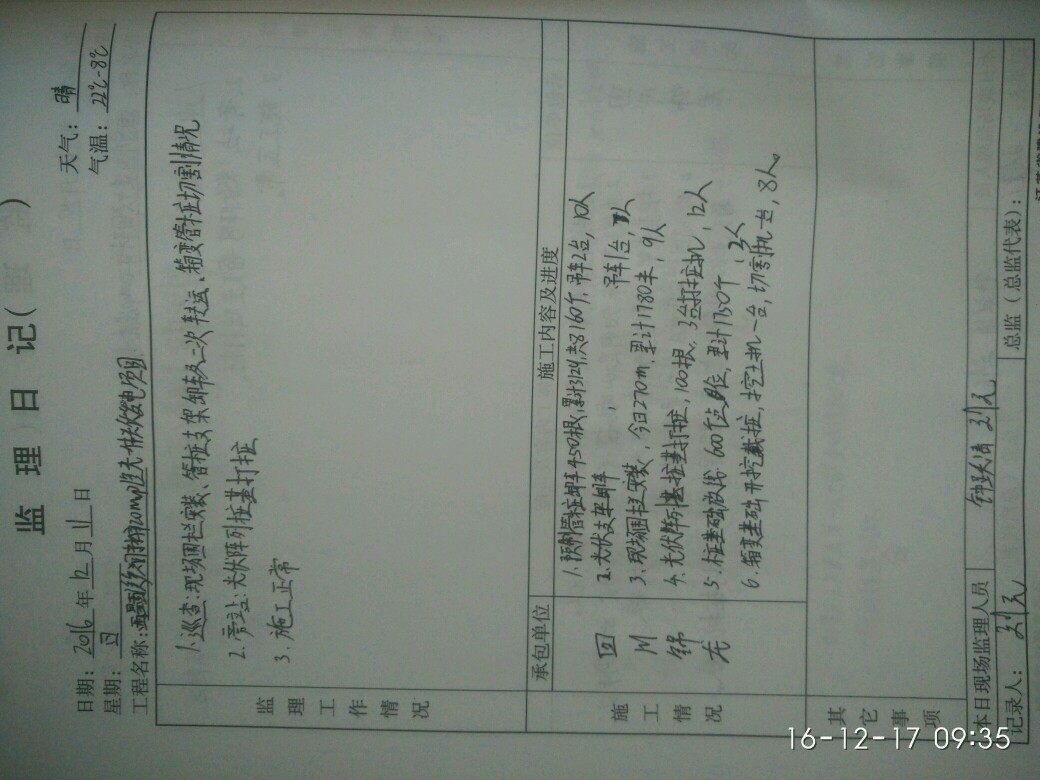 监 理 日 记（
日期：2016年12月11日
天气：晴
星期：日
气温：22℃-8℃
工程名称：
监理工作情况
1. 巡查：现场围栏安装、管桩支架卸车及二次转运、箱变管桩切割情况
2. 旁站：光伏阵列桩基打桩
3. 施工正常
承包单位
施工内容及进度
施工情况
四川锦龙
1. 预制管桩卸车450根，累计3124，共8160个，吊车2台，10人
2. 光伏支架卸车，吊车1台，人
3. 现场围栏安装，今日270m，累计1780米，9人
4. 光伏阵列基桩基打桩，100根，3台打桩机，12人
5. 桩基础放线600个点位，累计1750个，3人
6. 箱变基础开挖截桩，挖土机一台，切割机一台，8人。
其它事项
本日现场监理人员
刘元
记录人：刘元
总监（总监代表）：
16-12-17 09:35